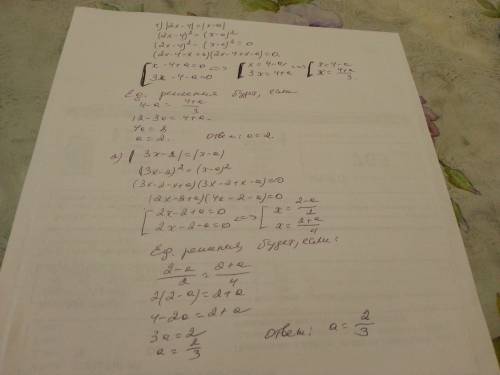 1) |2x-4| = |x-a|
(2x-4)² = (x-a)²
(2x-4)² - (x-a)² = 0
(2x-4-x+a)(2x-4+x-a)=0
[x-4+a=0 <=> [x=4-a <=> [x=4-a
[3x-4-a=0 [3x=4+a [x=4+a/3
Ед. решения будет, если
4-a = 4+a/3
12-3a=4+a
4a=8
a=2. Ответ: a=2.
2) |3x-2|=|x-a|
(3x-2)²=(x-a)²
(3x-2-x+a)(3x-2+x-a)=0
(2x-2+a)(4x-2-a)=0
[2x-2+a=0 <=> [x=2-a/2
[2x-2-a=0 [x=2+a/4
Ед. решения будет, если:
2-a/2 = 2+a/4
2(2-a)=2+a
4-2a=2+a
3a=2
a=2/3 Ответ: a=2/3